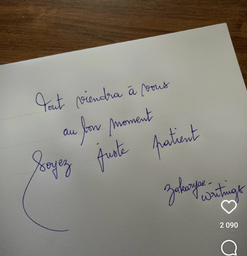 Tout viendra à vous
au bon moment
Soyez juste patient
zakaryae-
writings
2 090